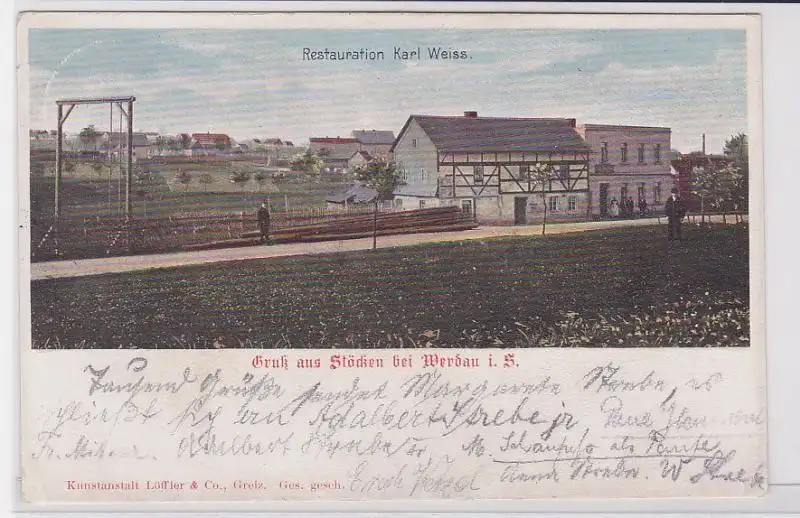 Restauration Karl Weiss.
Gruß aus Stöcken bei Werdau i. S.
Tausend Grüße sendet Margarete Strebe, es
schließt sich an Adalbert Strebe jr
Adalbert Strebe sr M. als Tante
Anna Strebe. W
Kunstanstalt Löffler & Co., Greiz. Ges. gesch. Erich